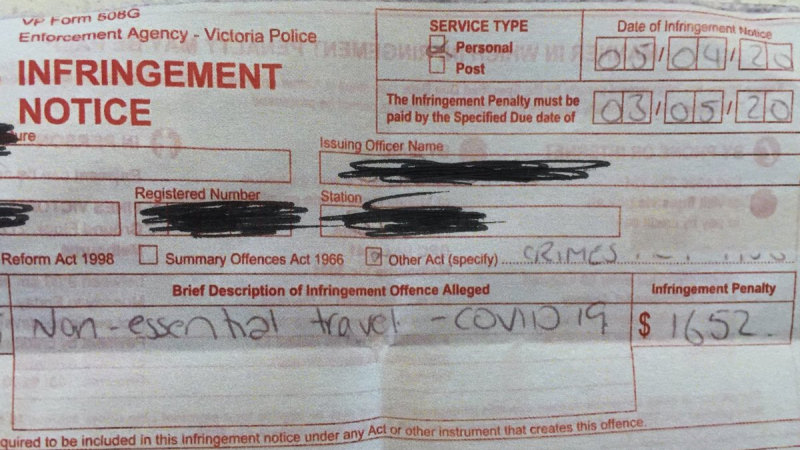 VP Form 508G
Enforcement Agency - Victoria Police
INFRINGEMENT
NOTICE
SERVICE TYPE
Personal
Post
Date of Infringement Notice
05/04/20
The Infringement Penalty must be
paid by the Specified Due date of
03/05/20
ure
Issuing Officer Name
Registered Number
Station
Reform Act 1998
Summary Offences Act 1966
Other Act (specify) CRIMES
Brief Description of Infringement Offence Alleged
Infringement Penalty
Non-essential travel - COVID 19
$ 1652.
quired to be included in this infringement notice under any Act or other instrument that creates this offence.